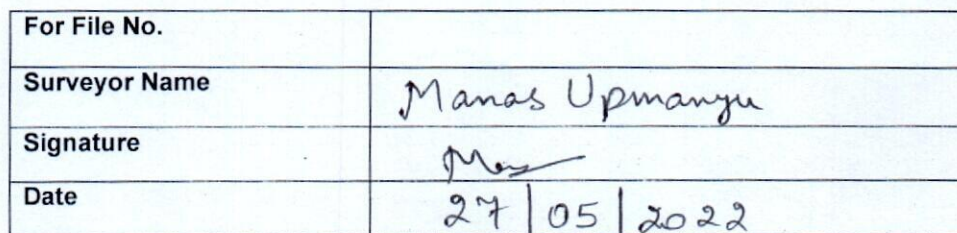 For File No.
Surveyor Name Manas Upmanyu
Signature
Date 27|05|2022